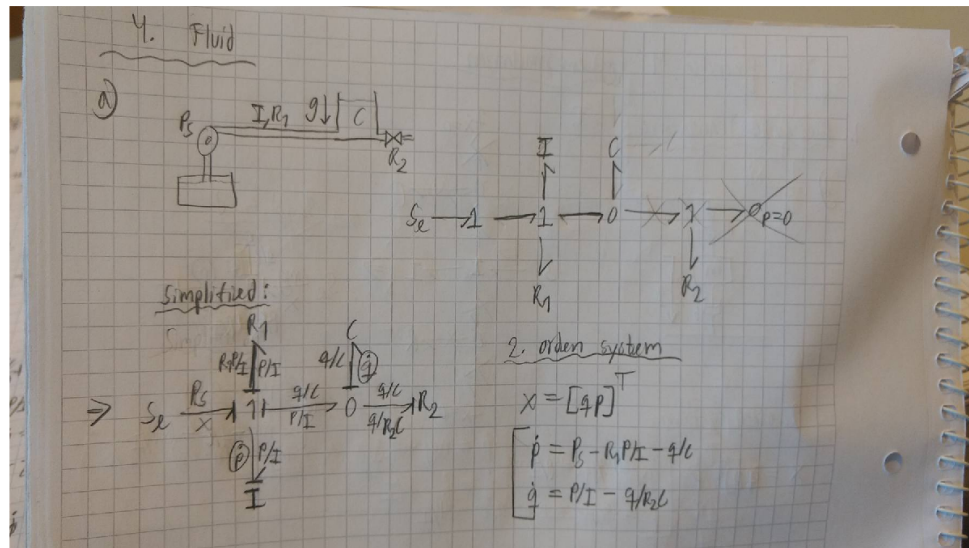 4. Fluid
a)
I, R1 g↓ C
Ps
R2
I C
Se → 1 → 1 → 0 → 1 → 0 p=0
R1 R2
Simplified:
R1
R1P/I P/I
C
q/C q̇
⇒ Se Ps 1 q/C P/I 0 q/C q/R2C R2
x
ṗ P/I
I
2. orden system
x = [q p]ᵀ
ṗ = Ps - R1P/I - q/C
q̇ = P/I - q/R2C